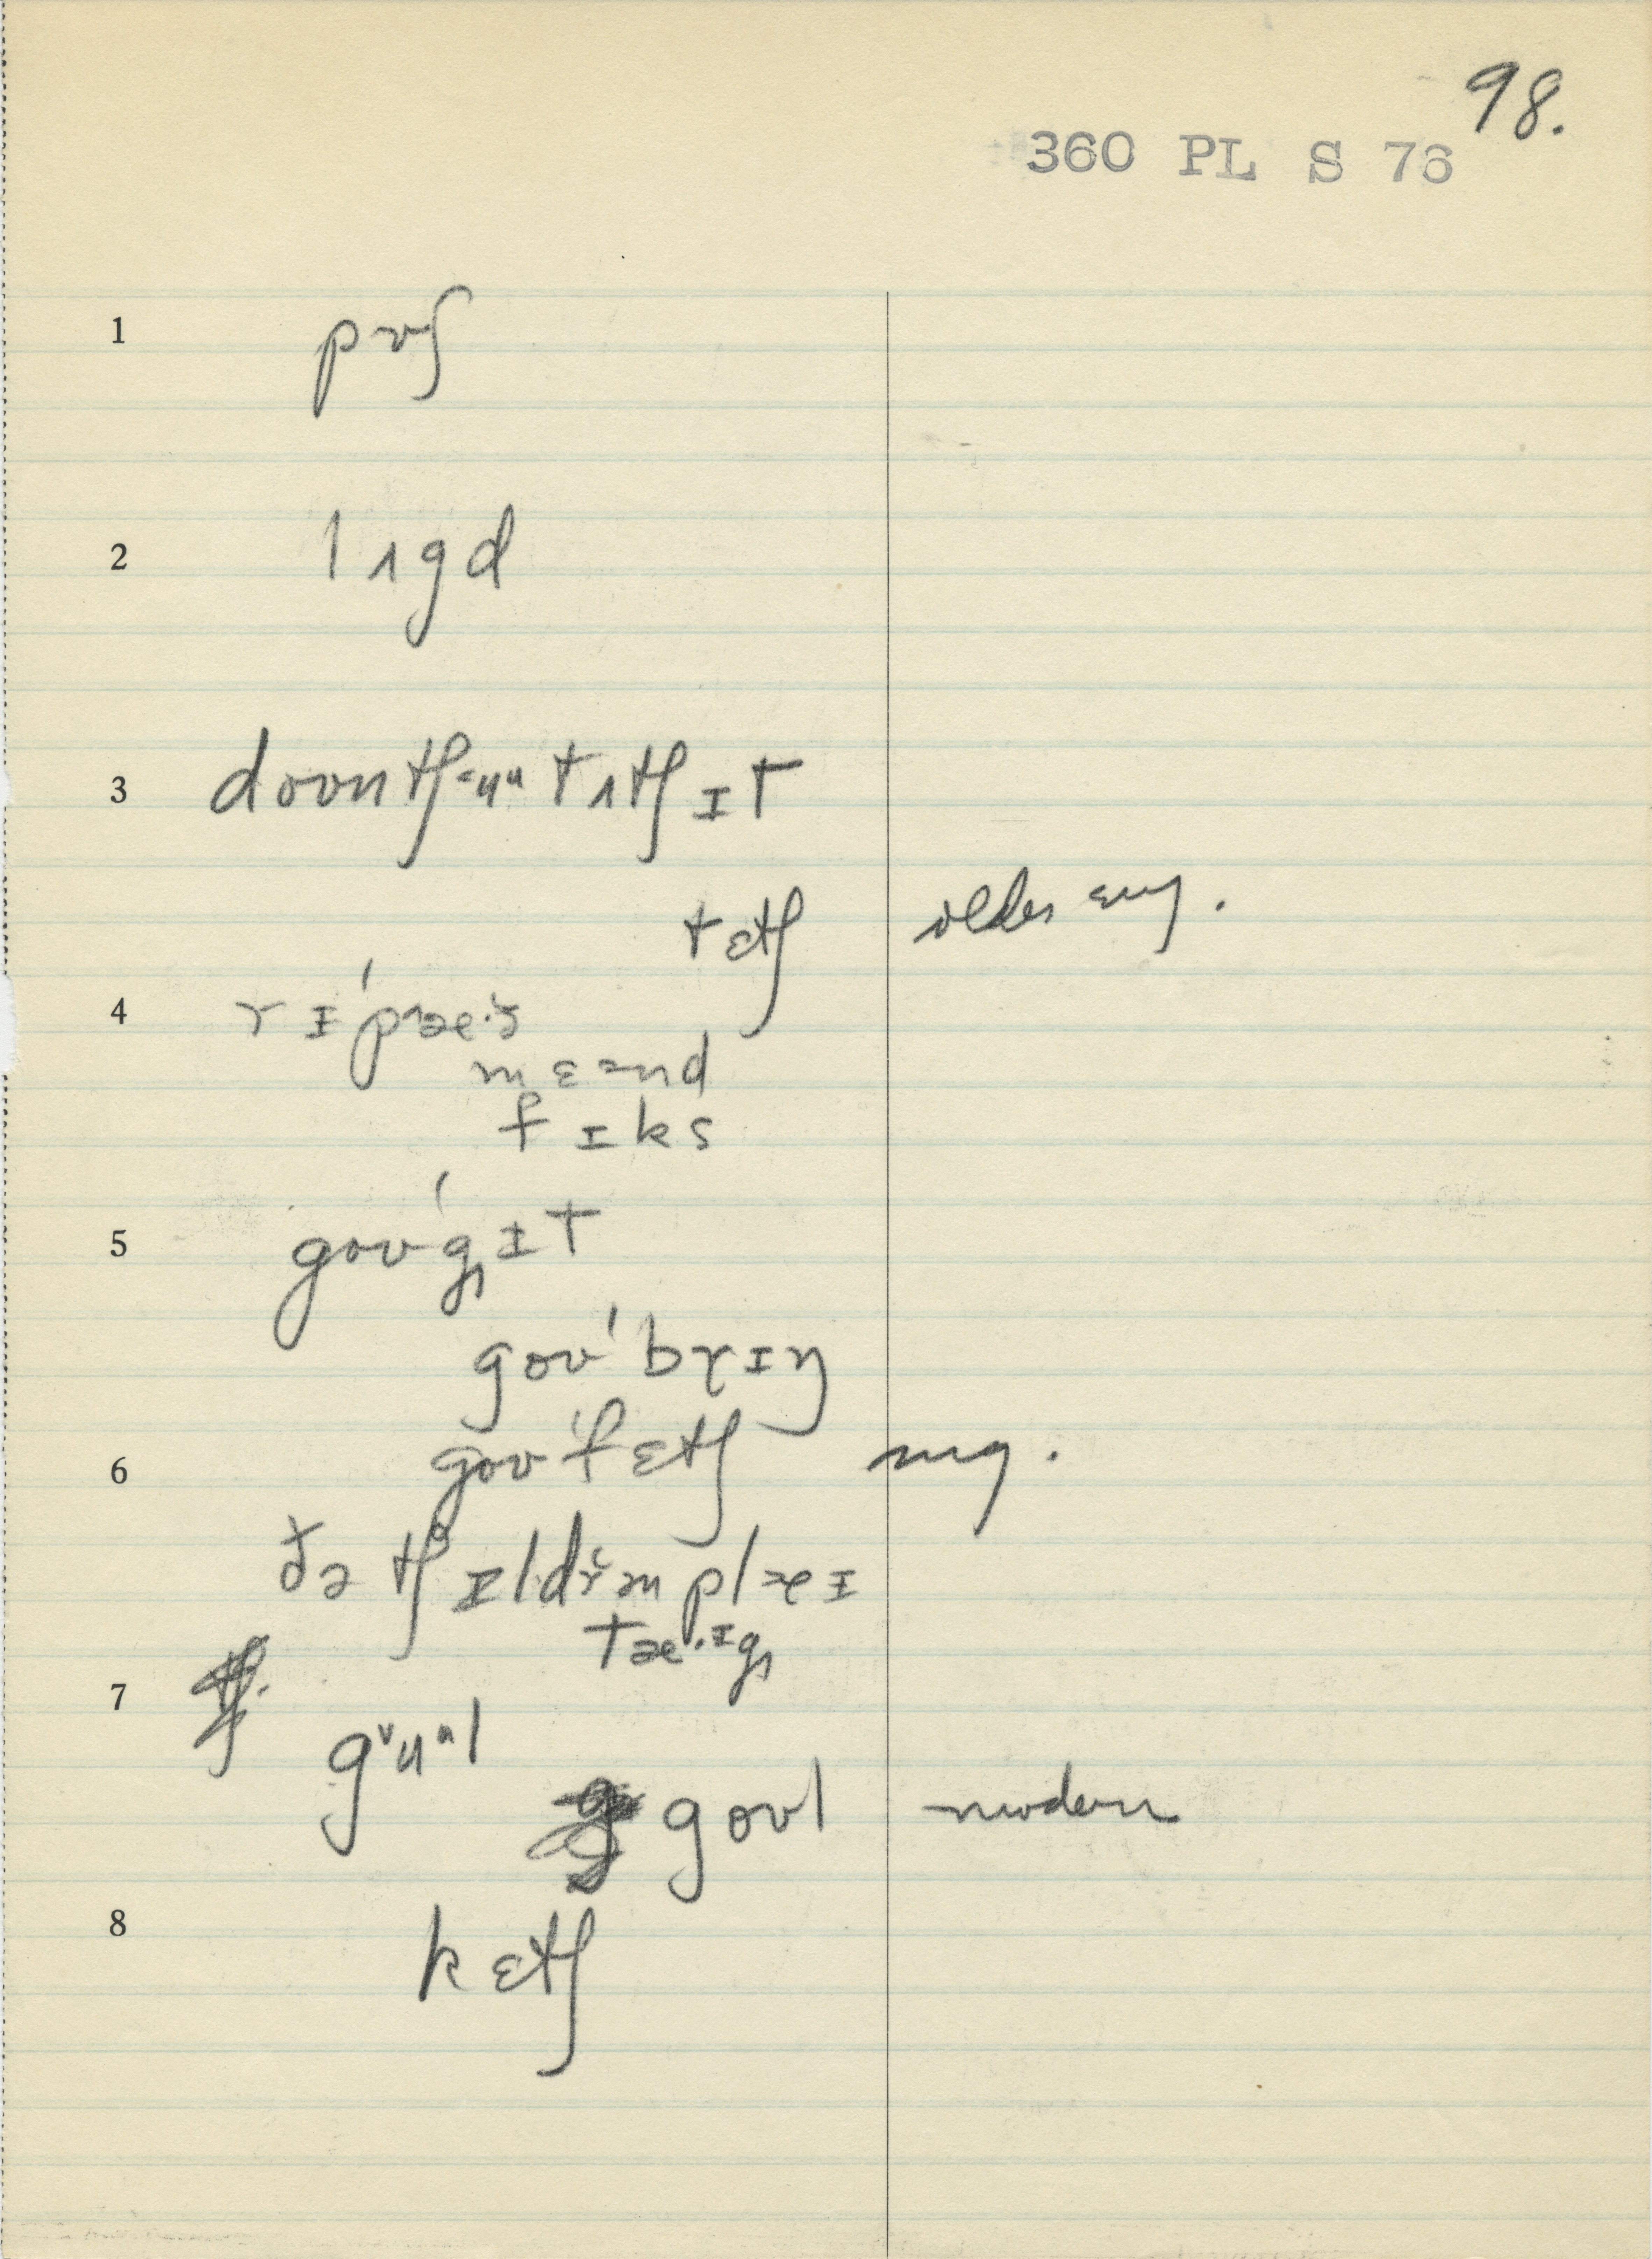 98.
360 PL S 76
1 pʊʃ
2 lʌgd
3 doʊntʃᵊuᵘ tʌtʃ ɪt
tɛtʃ older
4 rɪ'pæ
mɛənd
fɪks
5 goʊ'gɪt
goʊ'brɪŋ
6 goʊ'fɛtʃ
ðə tʃɪldrᵊm plæɪ
7
gᶷuᵘl
goʊl modern
8 kɛtʃ